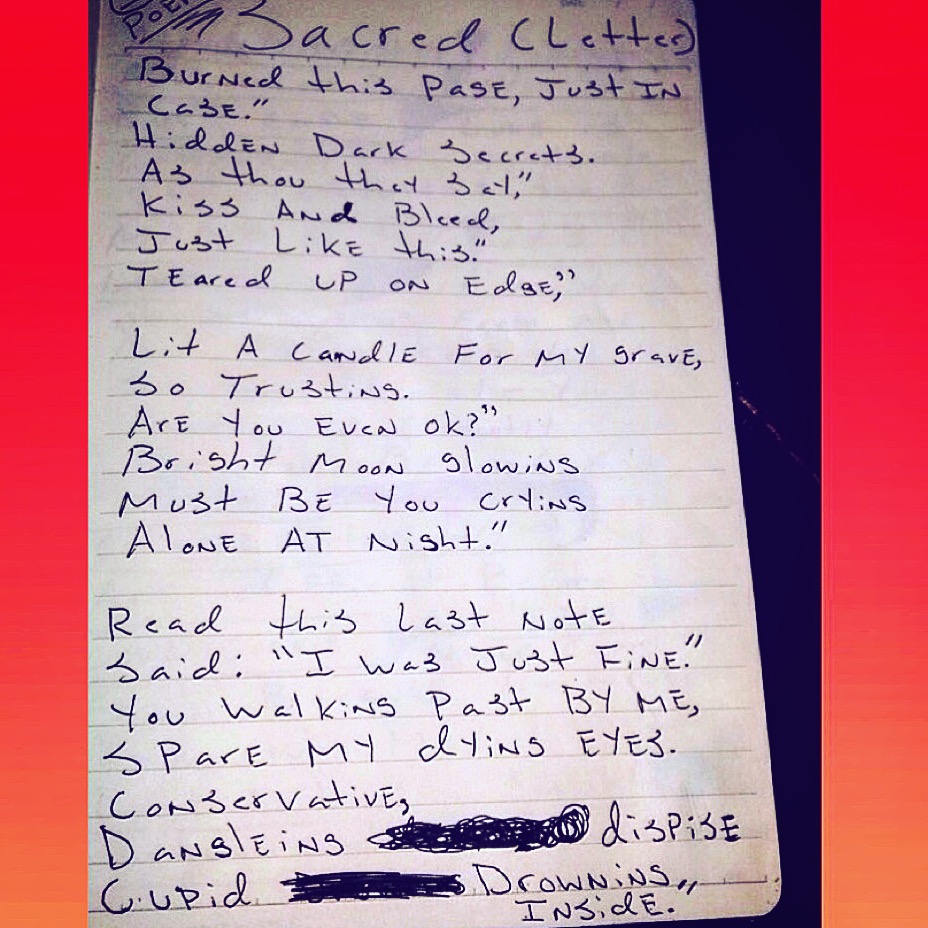 Poem Sacred (Letter)
Burned this Page, Just IN
Case."
Hidden Dark Secrets.
As thou they Say,"
Kiss And Bleed,
Just Like this."
Teared UP ON Edge,"
Lit A Candle For My grave,
So Trusting.
Are You Even Ok?"
Bright Moon glowing
Must BE You crying
Alone AT Night."
Read this Last Note
Said: "I was Just Fine."
You Walking Past BY ME,
SPare MY dying EYES.
Conservative,
Dangleing dispise
Cupid Drowning
Inside."